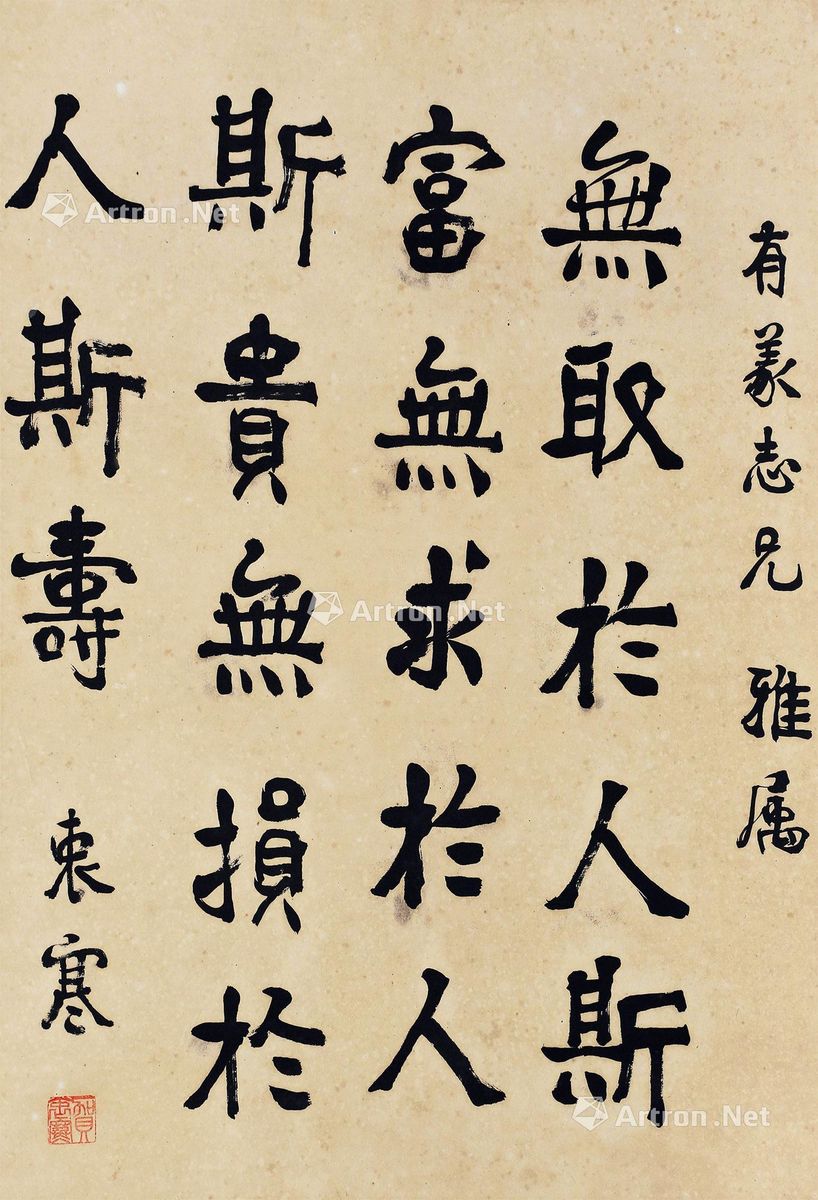 有義志兄 雅属
無取於人斯
富無求於人
斯貴無損於
人斯壽
衷寒
賀衷寒
Artron.Net
Artron.Net
Artron.Net